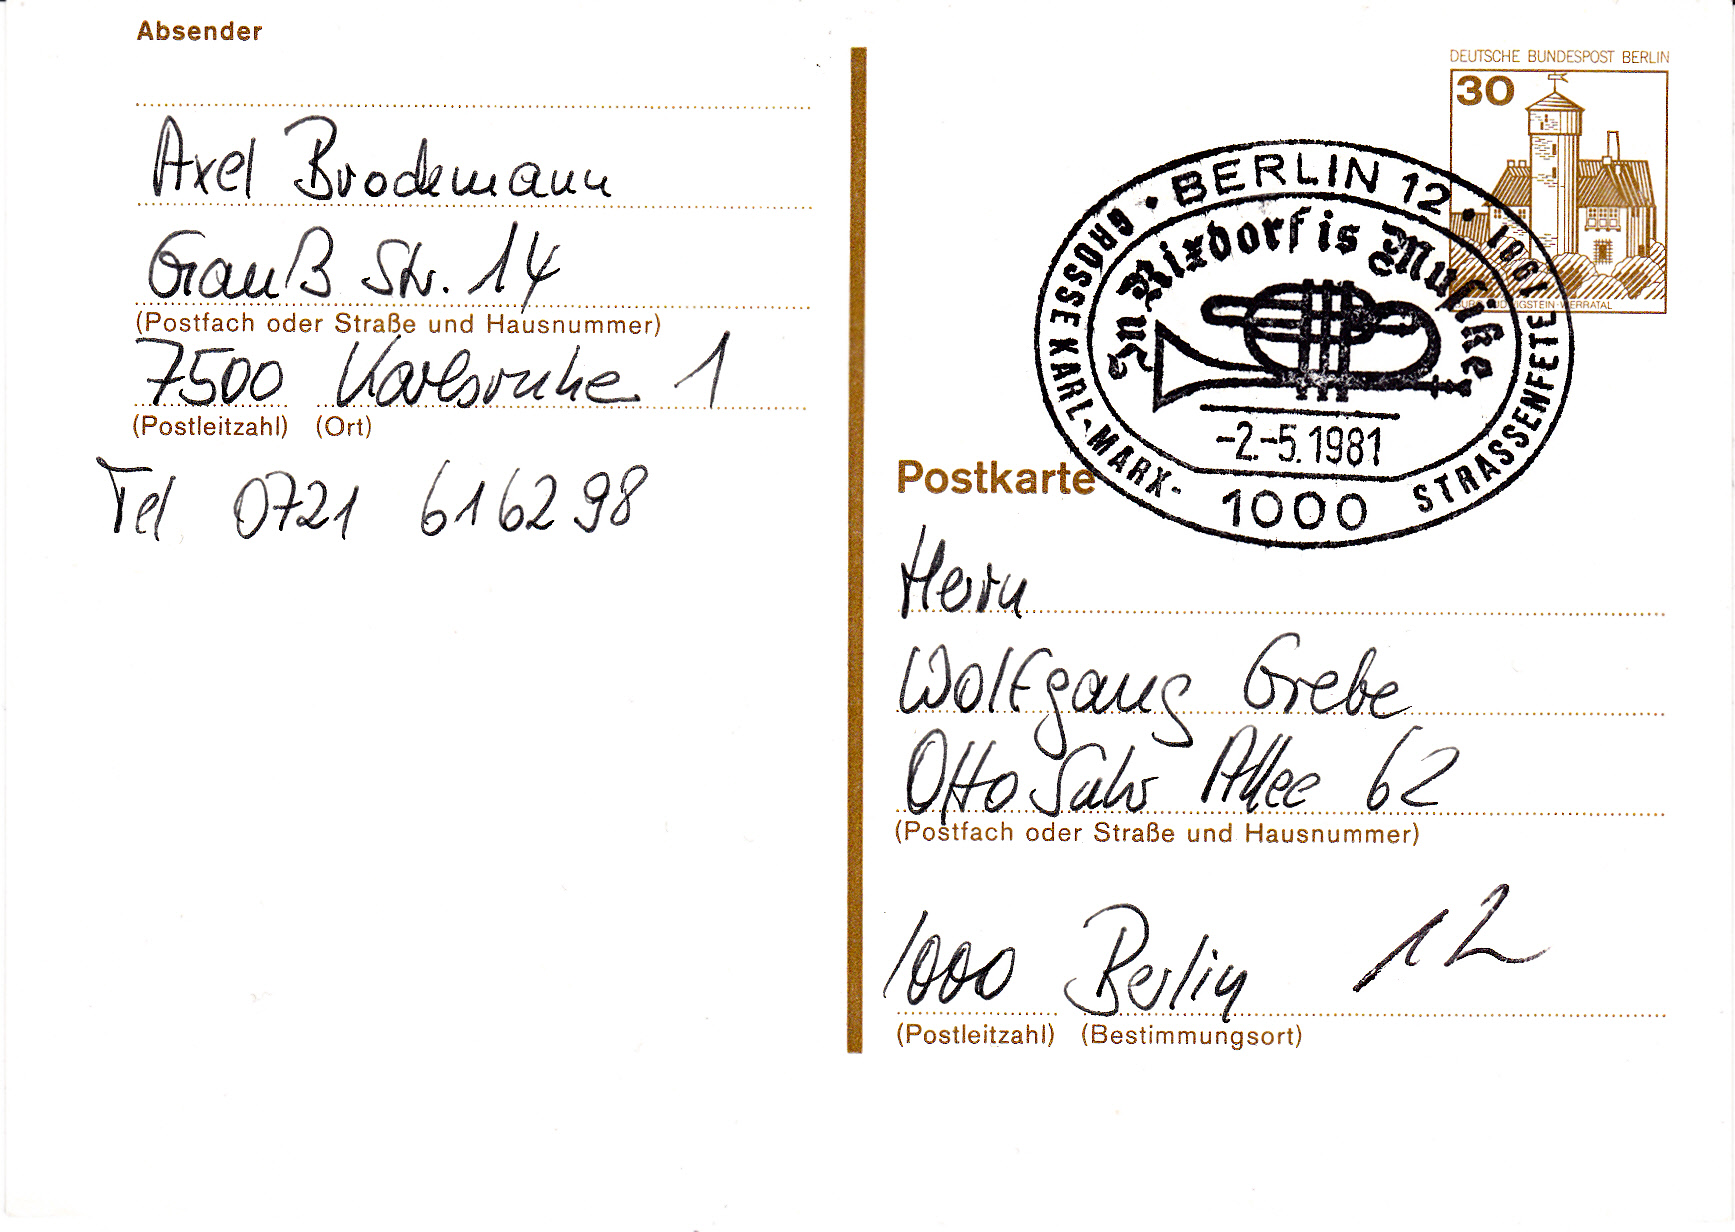 Absender
Axel Brodemann
Gauß Str. 14
(Postfach oder Straße und Hausnummer)
7500 Karlsruhe 1
(Postleitzahl) (Ort)
Tel 0721 616298
DEUTSCHE BUNDESPOST BERLIN
30
BURG LUDWIGSTEIN·WERRATAL
· BERLIN 12 ·
GROSSE KARL-MARX- STRASSENFETE 1981
In Rixdorf is Musike
-2.-5.1981
1000
Postkarte
Herrn
Wolfgang Grebe
Otto Suhr Allee 62
(Postfach oder Straße und Hausnummer)
1000 Berlin 12
(Postleitzahl) (Bestimmungsort)